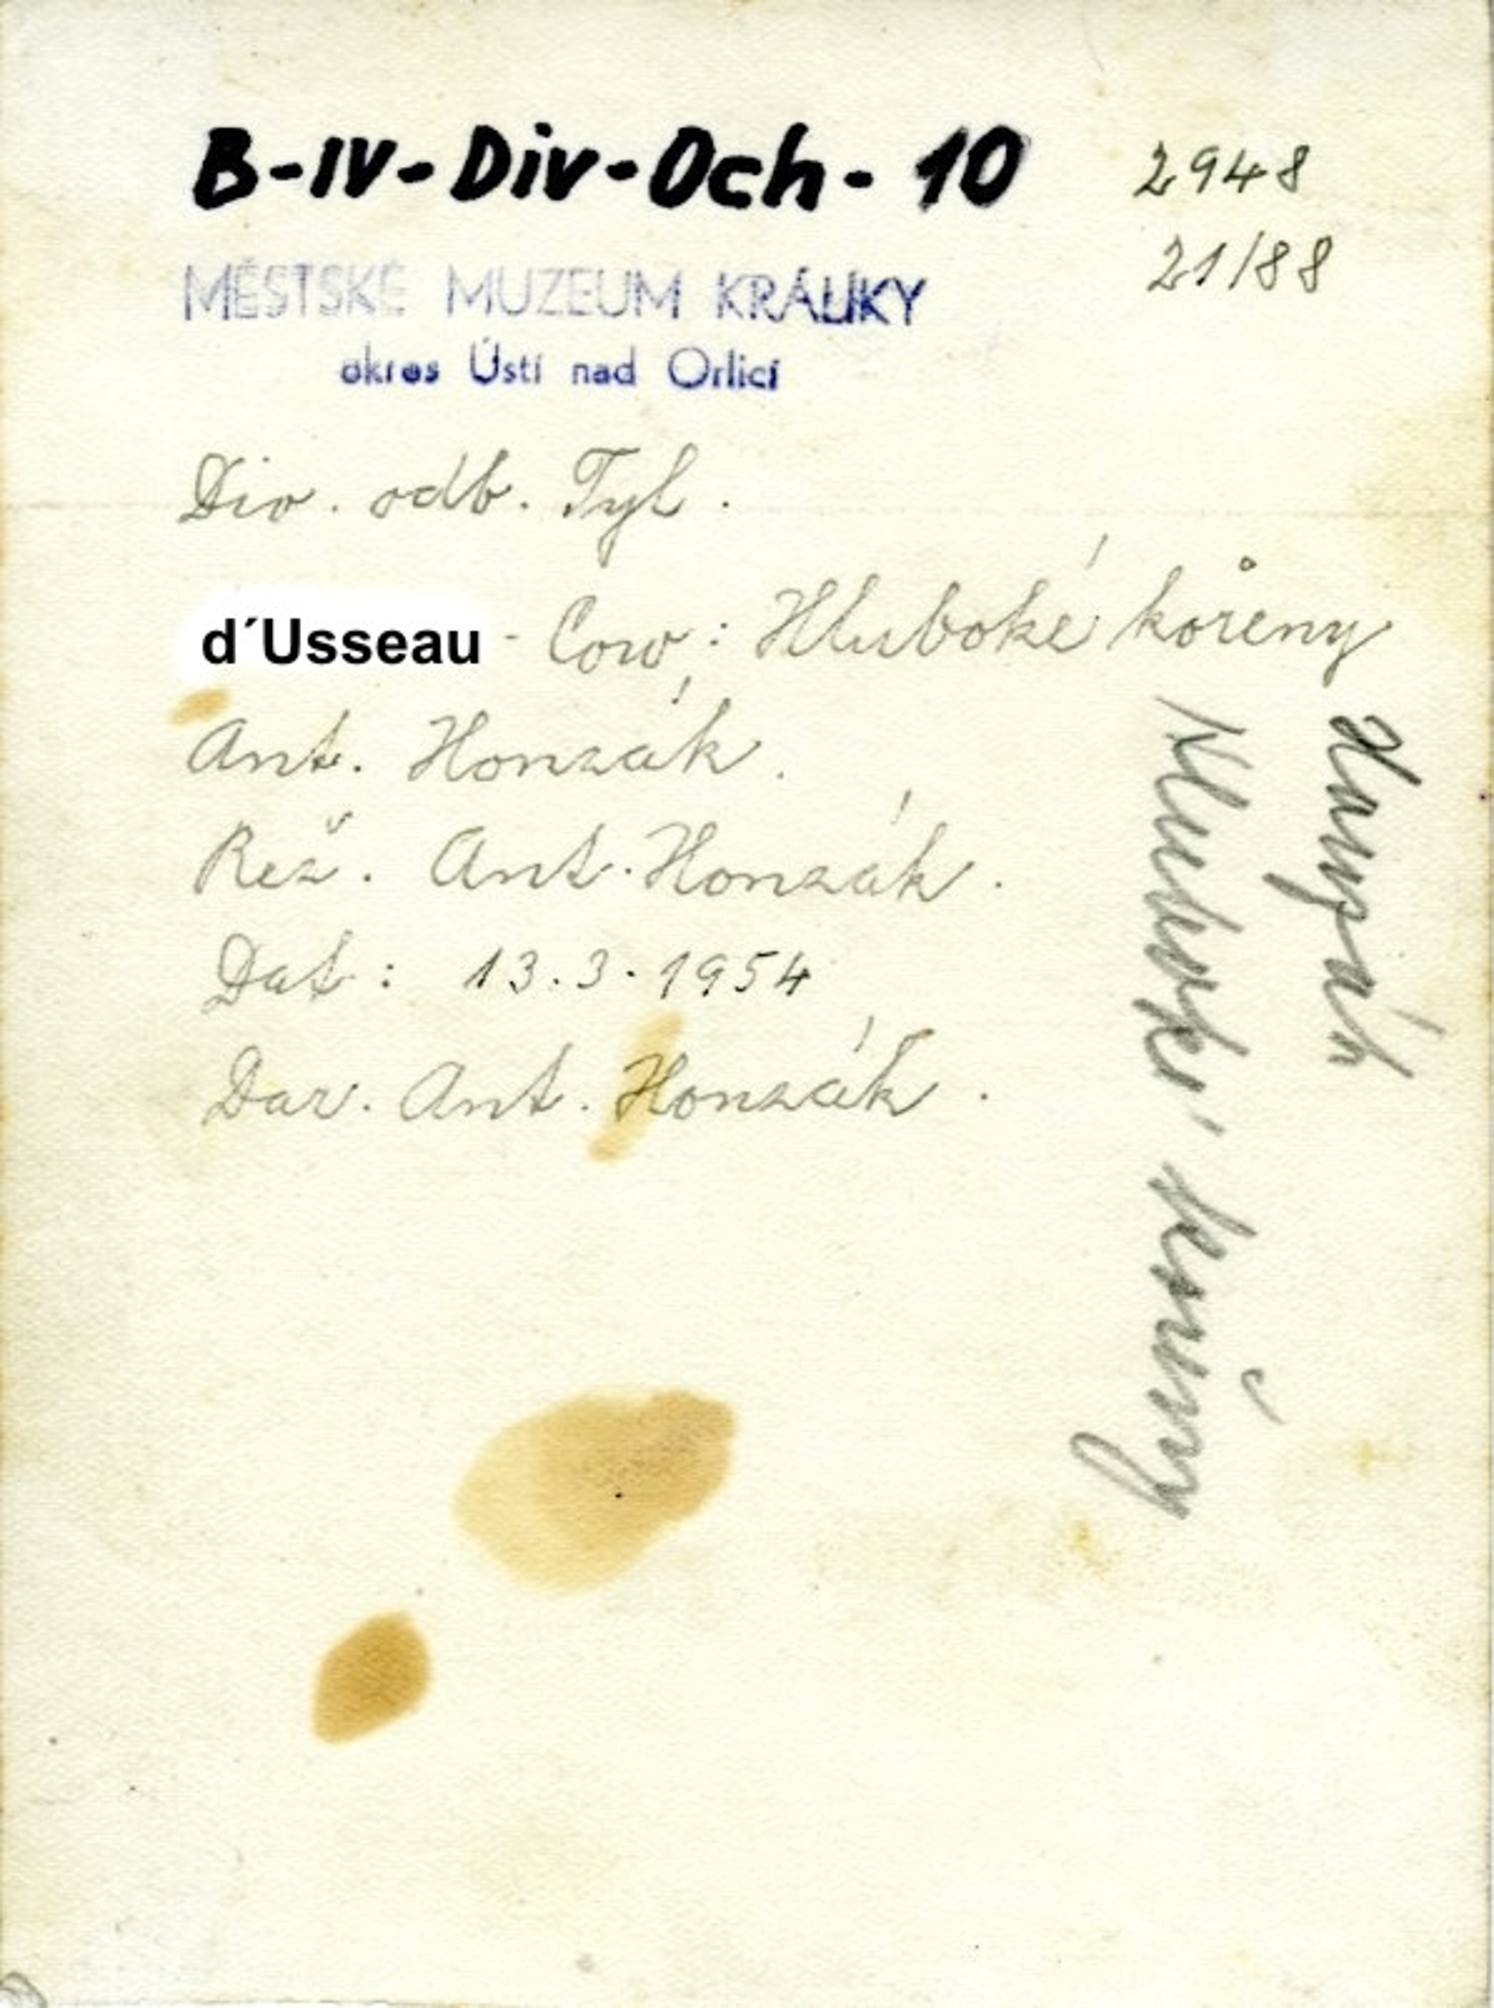 B-IV-Div-Och-10
2948
21/88
MĚSTSKÉ MUZEUM KRÁLÍKY
okres Ústí nad Orlicí
Div. odb. Tyl.
d´Usseau - Cow: Hluboké kořeny
Ant. Honzák.
Rež. Ant. Honzák.
Dat: 13.3.1954
Dar. Ant. Honzák.
Hluboké kořeny